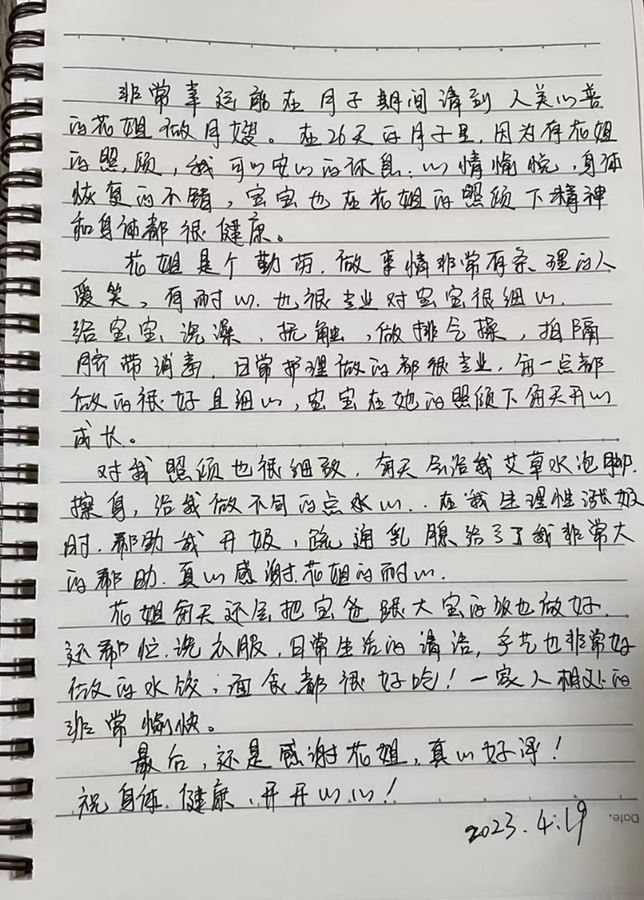 非常幸运能在月子期间请到人美心善
的花姐做月嫂。在26天的月子里,因为有花姐
的照顾,我可以安心的休息.心情愉悦,身体
恢复的不错,宝宝也在花姐的照顾下精神
和身体都很健康。
花姐是个勤劳.做事情非常有条理的人
爱笑、有耐心.也很专业对宝宝很细心.
给宝宝洗澡、抚触、做排气操,拍隔
脐带消毒,日常护理做的都很专业,每一点都
做的很好且细心,宝宝在她的照顾下每天开心
成长。
对我照顾也很细致,每天会给我艾草水泡脚.
擦身,给我做不同的点水心..在我生理性涨奶
时.帮助我开奶,疏通乳腺给予了我非常大
的帮助.真心感谢花姐的耐心.
花姐每天还会把宝爸跟大宝的饭也做好.
还帮忙洗衣服,日常生活的清洁,手艺也非常好
做的水饺,面食都很好吃!一家人相处的
非常愉快。
最后,还是感谢花姐,真心好评!
祝身体健康、开开心心!
2023.4.19
Date.